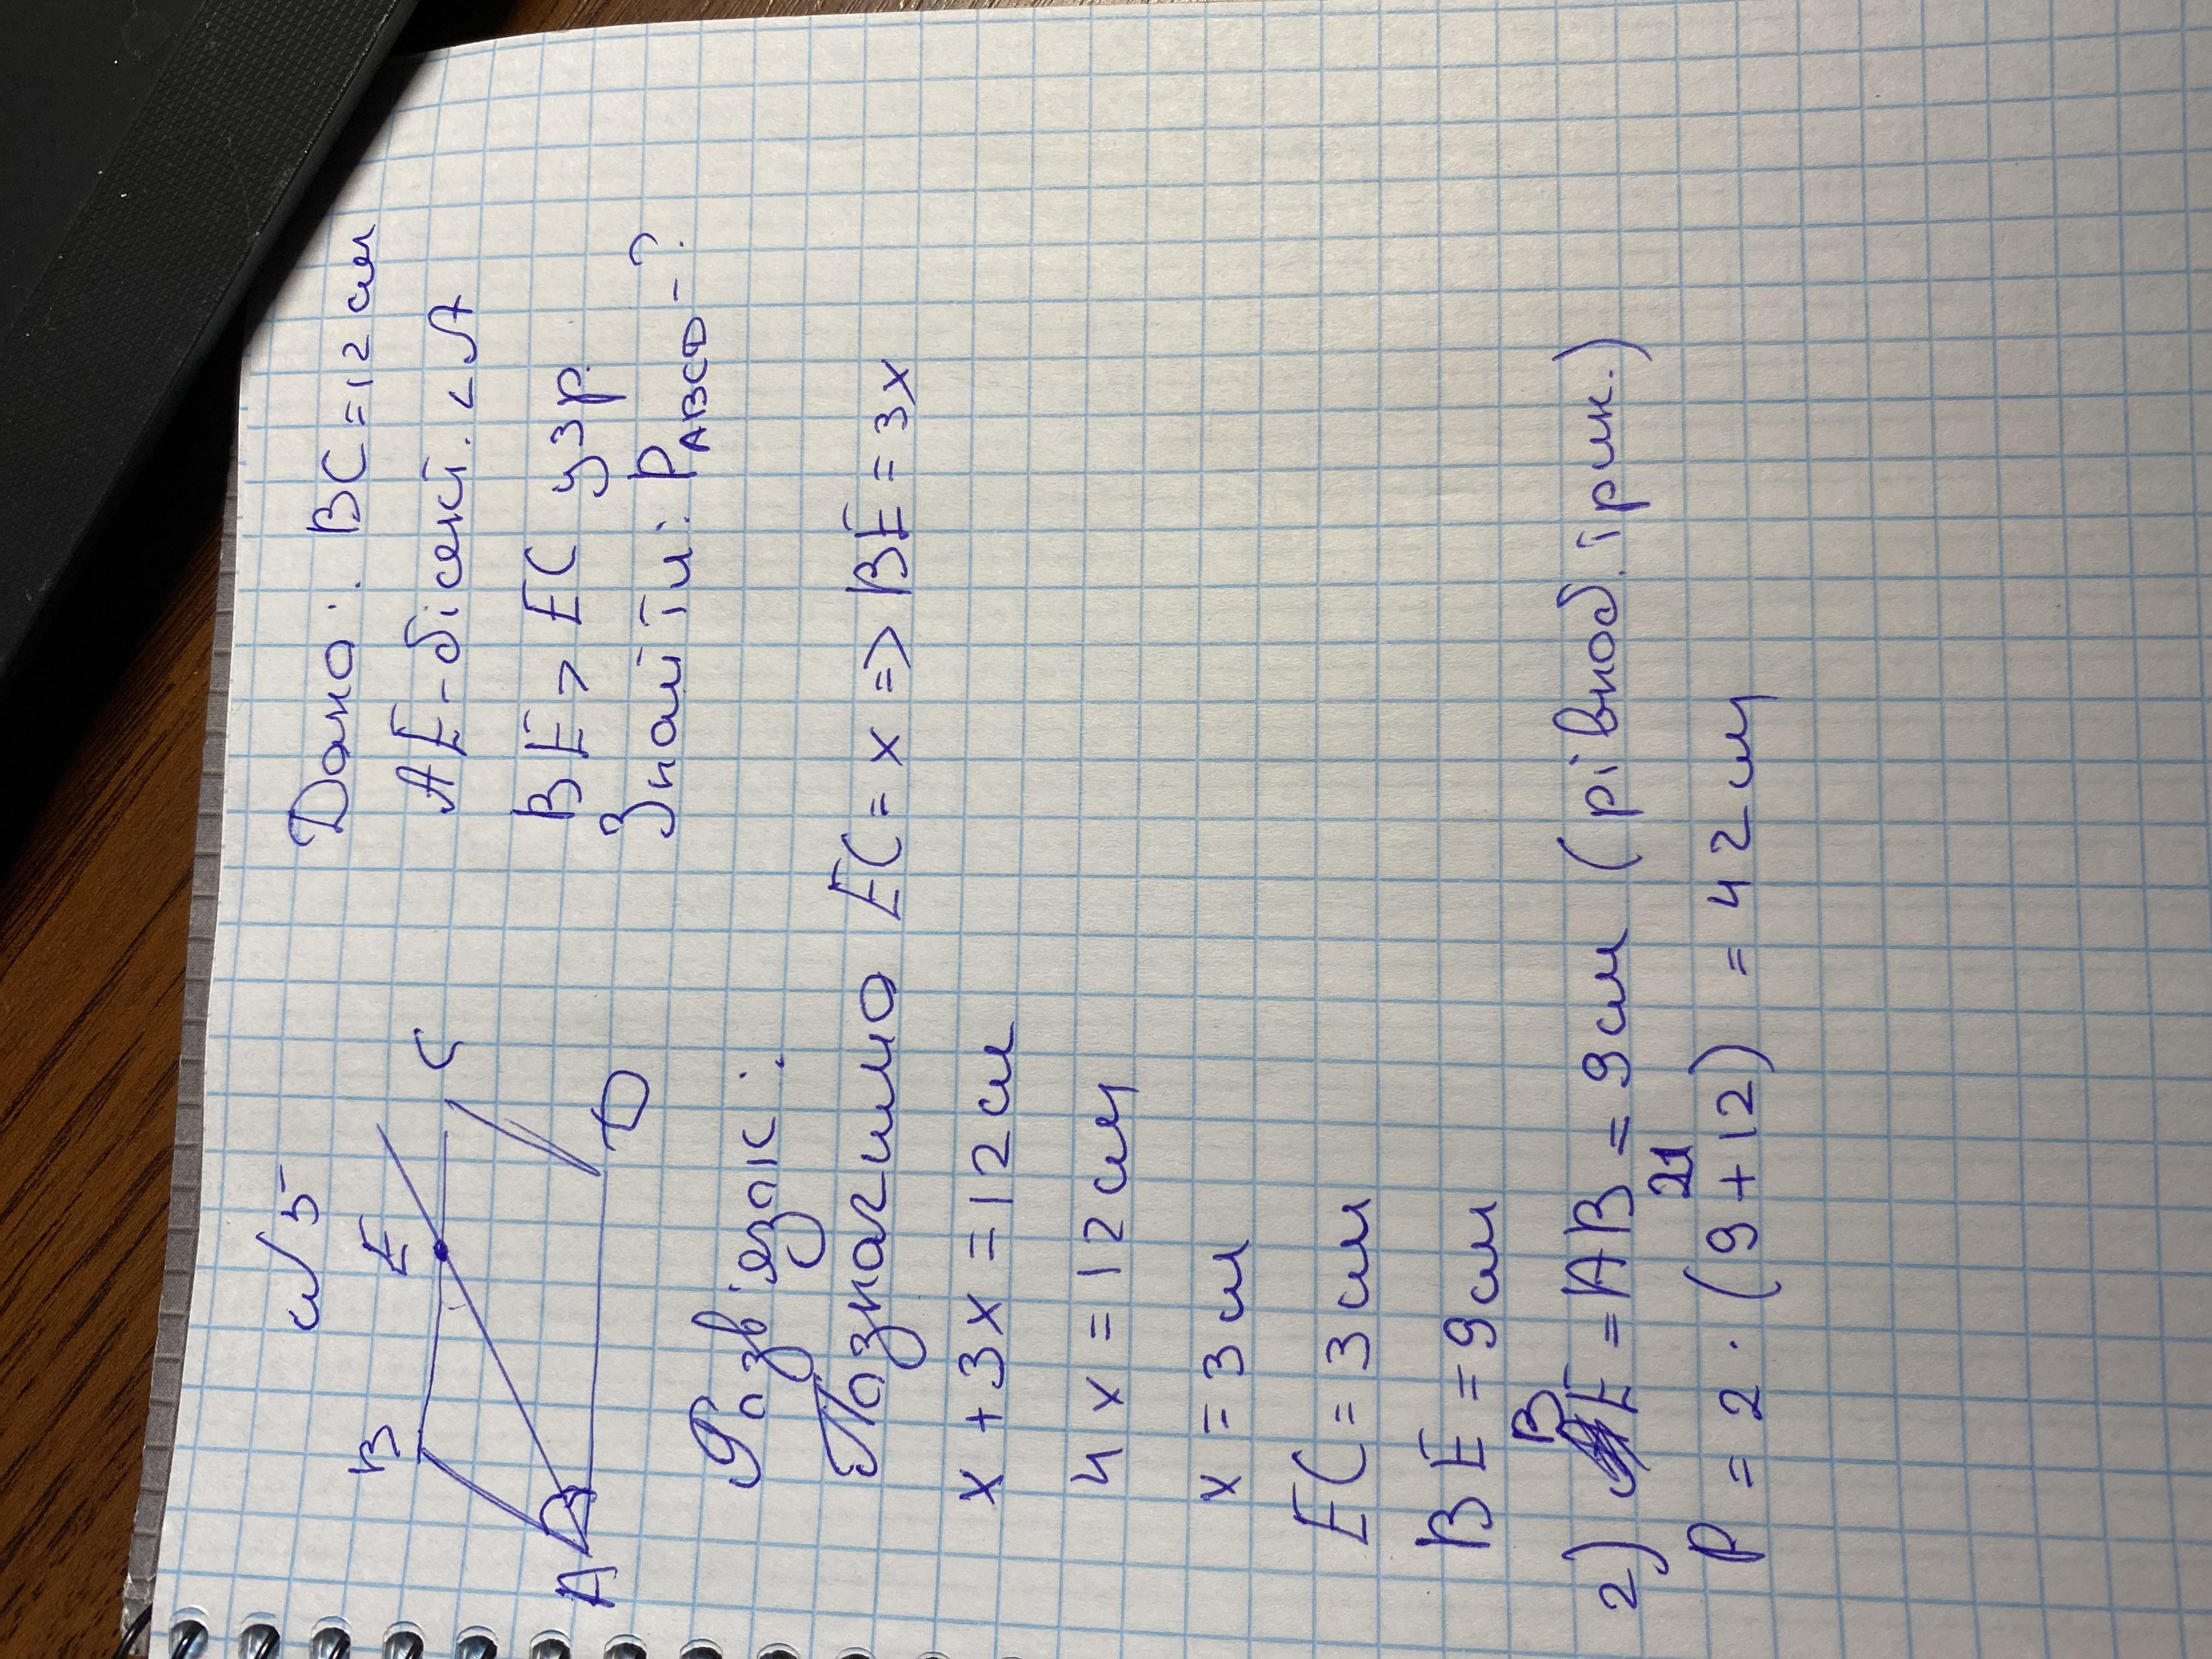 №5
B E C
A D
Дано: BC = 12 см
AE - бісект. ∠A
BE > EC у 3 р.
Знайти: PABCD - ?
Розв'язок:
Позначимо EC = x => BE = 3x
x + 3x = 12 см
4x = 12 см
x = 3 см
EC = 3 см
BE = 9 см
2) BE = AB = 9 см (рівноб. трик.)
21
P = 2 · (9 + 12) = 42 см